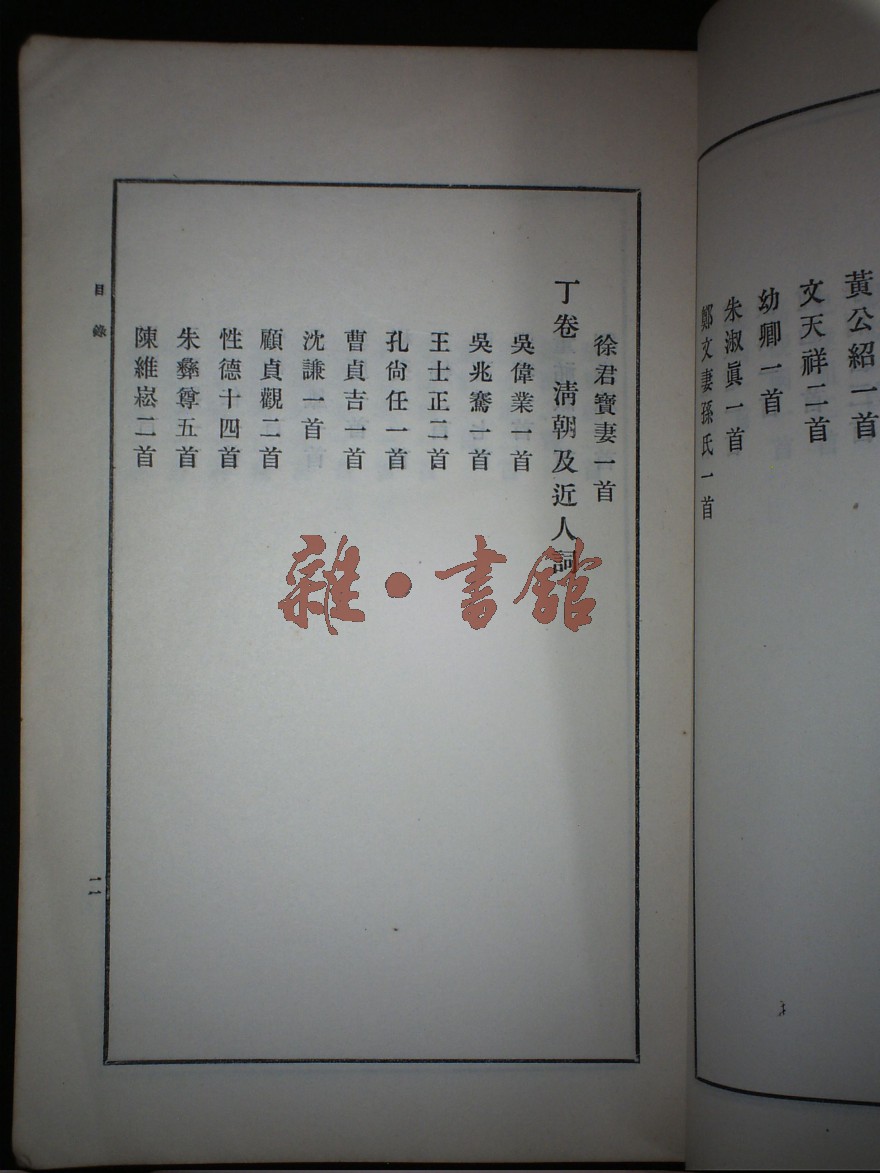 黃公紹一首
文天祥二首
幼卿一首
朱淑眞一首
鄭文妻孫氏一首
徐君寶妻一首
丁卷　淸朝及近人詞
吳偉業一首
吳兆騫一首
王士正二首
孔尙任一首
曹貞吉一首
沈謙一首
顧貞觀二首
性德十四首
朱彝尊五首
陳維崧二首
目錄
一一
雜·書館